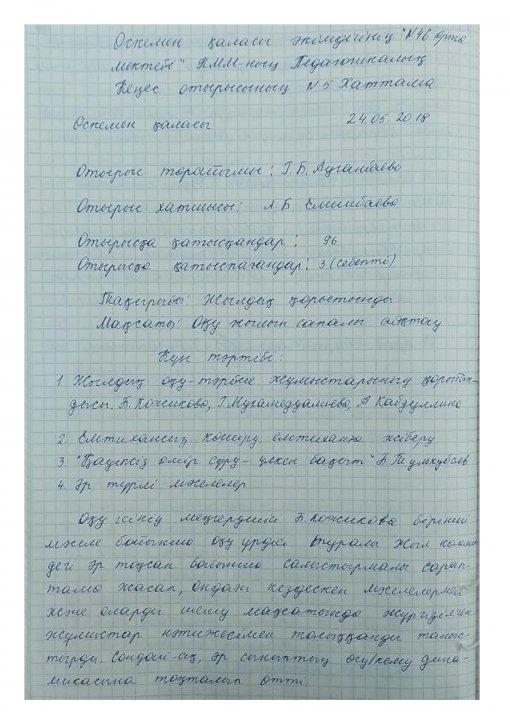 Өскемен қаласы әкімдігінің "№46 орта
мектебі" КММ-ның Педагогикалық
Кеңес отырысының №5 Хаттама
Өскемен қаласы 24.05 2018
Отырыс төрайымы: Г.Б. Ауганбаева
Отырыс хатшысы: Л Б Емишбаева
Отырысқа қатысқандар: 96
Отырысқа қатыспағандар: 3 (себепті)
Тақырыбы: Жылдық қорытынды
Мақсаты: Оқу жылын сапалы аяқтау
Күн тәртібі:
1 Жылдық оқу-тәрбие жұмыстарының қорытын-
дысы. Б. Кожикова, Г. Мухамедгалиева, А Кабдуллина
2. Емтихансыз көшіру, емтиханға жіберу
3. "Қауіпсіз өмір сүру - үлкен бақыт" Б.
4. Әр түрлі мәселелер
Оқу ісінің меңгерушісі Б. Кожикова бірінші
мәселе бойынша оқу үрдісі туралы жыл көлемін
дегі әр тоқсан бойынша салыстырмалы сарап-
тама жасап, ондағы кездескен мәселелермен
және оларды шешу мақсатында жүргізілген
жұмыстар нәтижесімен толыққанды таныс-
тырды. Сондай-ақ, әр сыныптың өсу/кему дина-
микасына тоқталып өтті.